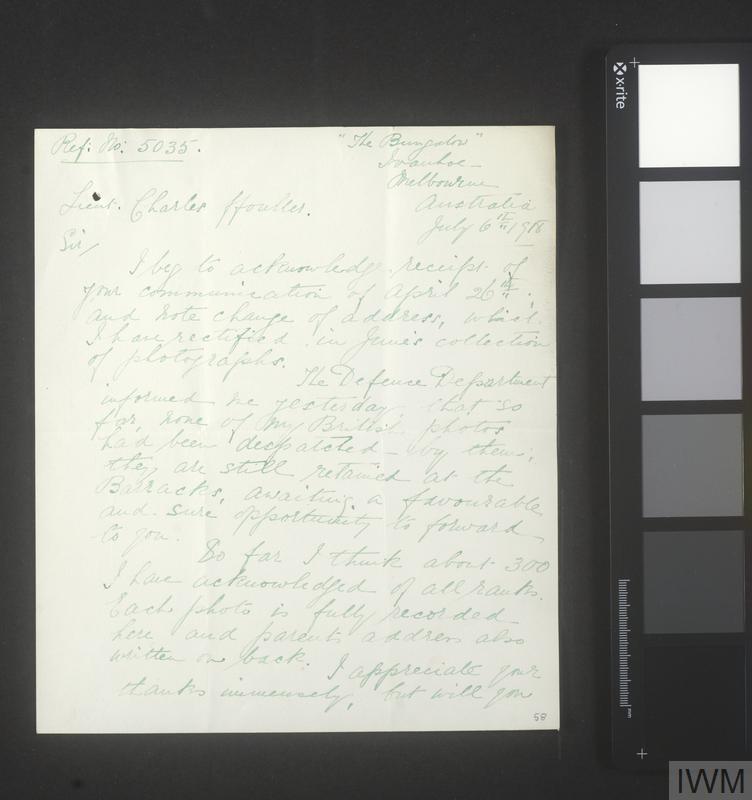 Ref: No: 5035.
"The Bungalow"
Ivanhoe –
Melbourne
Australia
July 6th 1918
Lieut. Charles ffoulkes.
Sir/
I beg to acknowledge receipt of
your communication of April 26th:
and note change of address, which
I have rectified in June's collection
of photographs.
The Defence Department
informed me yesterday, that so
far, none of my British photos
had been despatched – by them;
they are still retained at the
Barracks, awaiting a favourable
and sure opportunity to forward
to you.
So far I think about 300
I have acknowledged of all ranks.
Each photo is fully recorded
here and parents address also
written on back. I appreciate your
thanks immensely, but will you
58
x-rite
mm
IWM